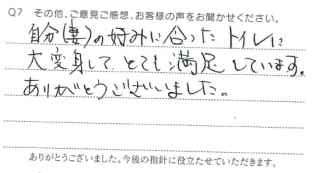 Q7 その他、ご意見ご感想、お客様の声をお聞かせください。
自分(妻)の好みに合ったトイレに
大変身して とても満足しています。
ありがとうございました。
ありがとうございました。今後の指針に役立たせていただきます。